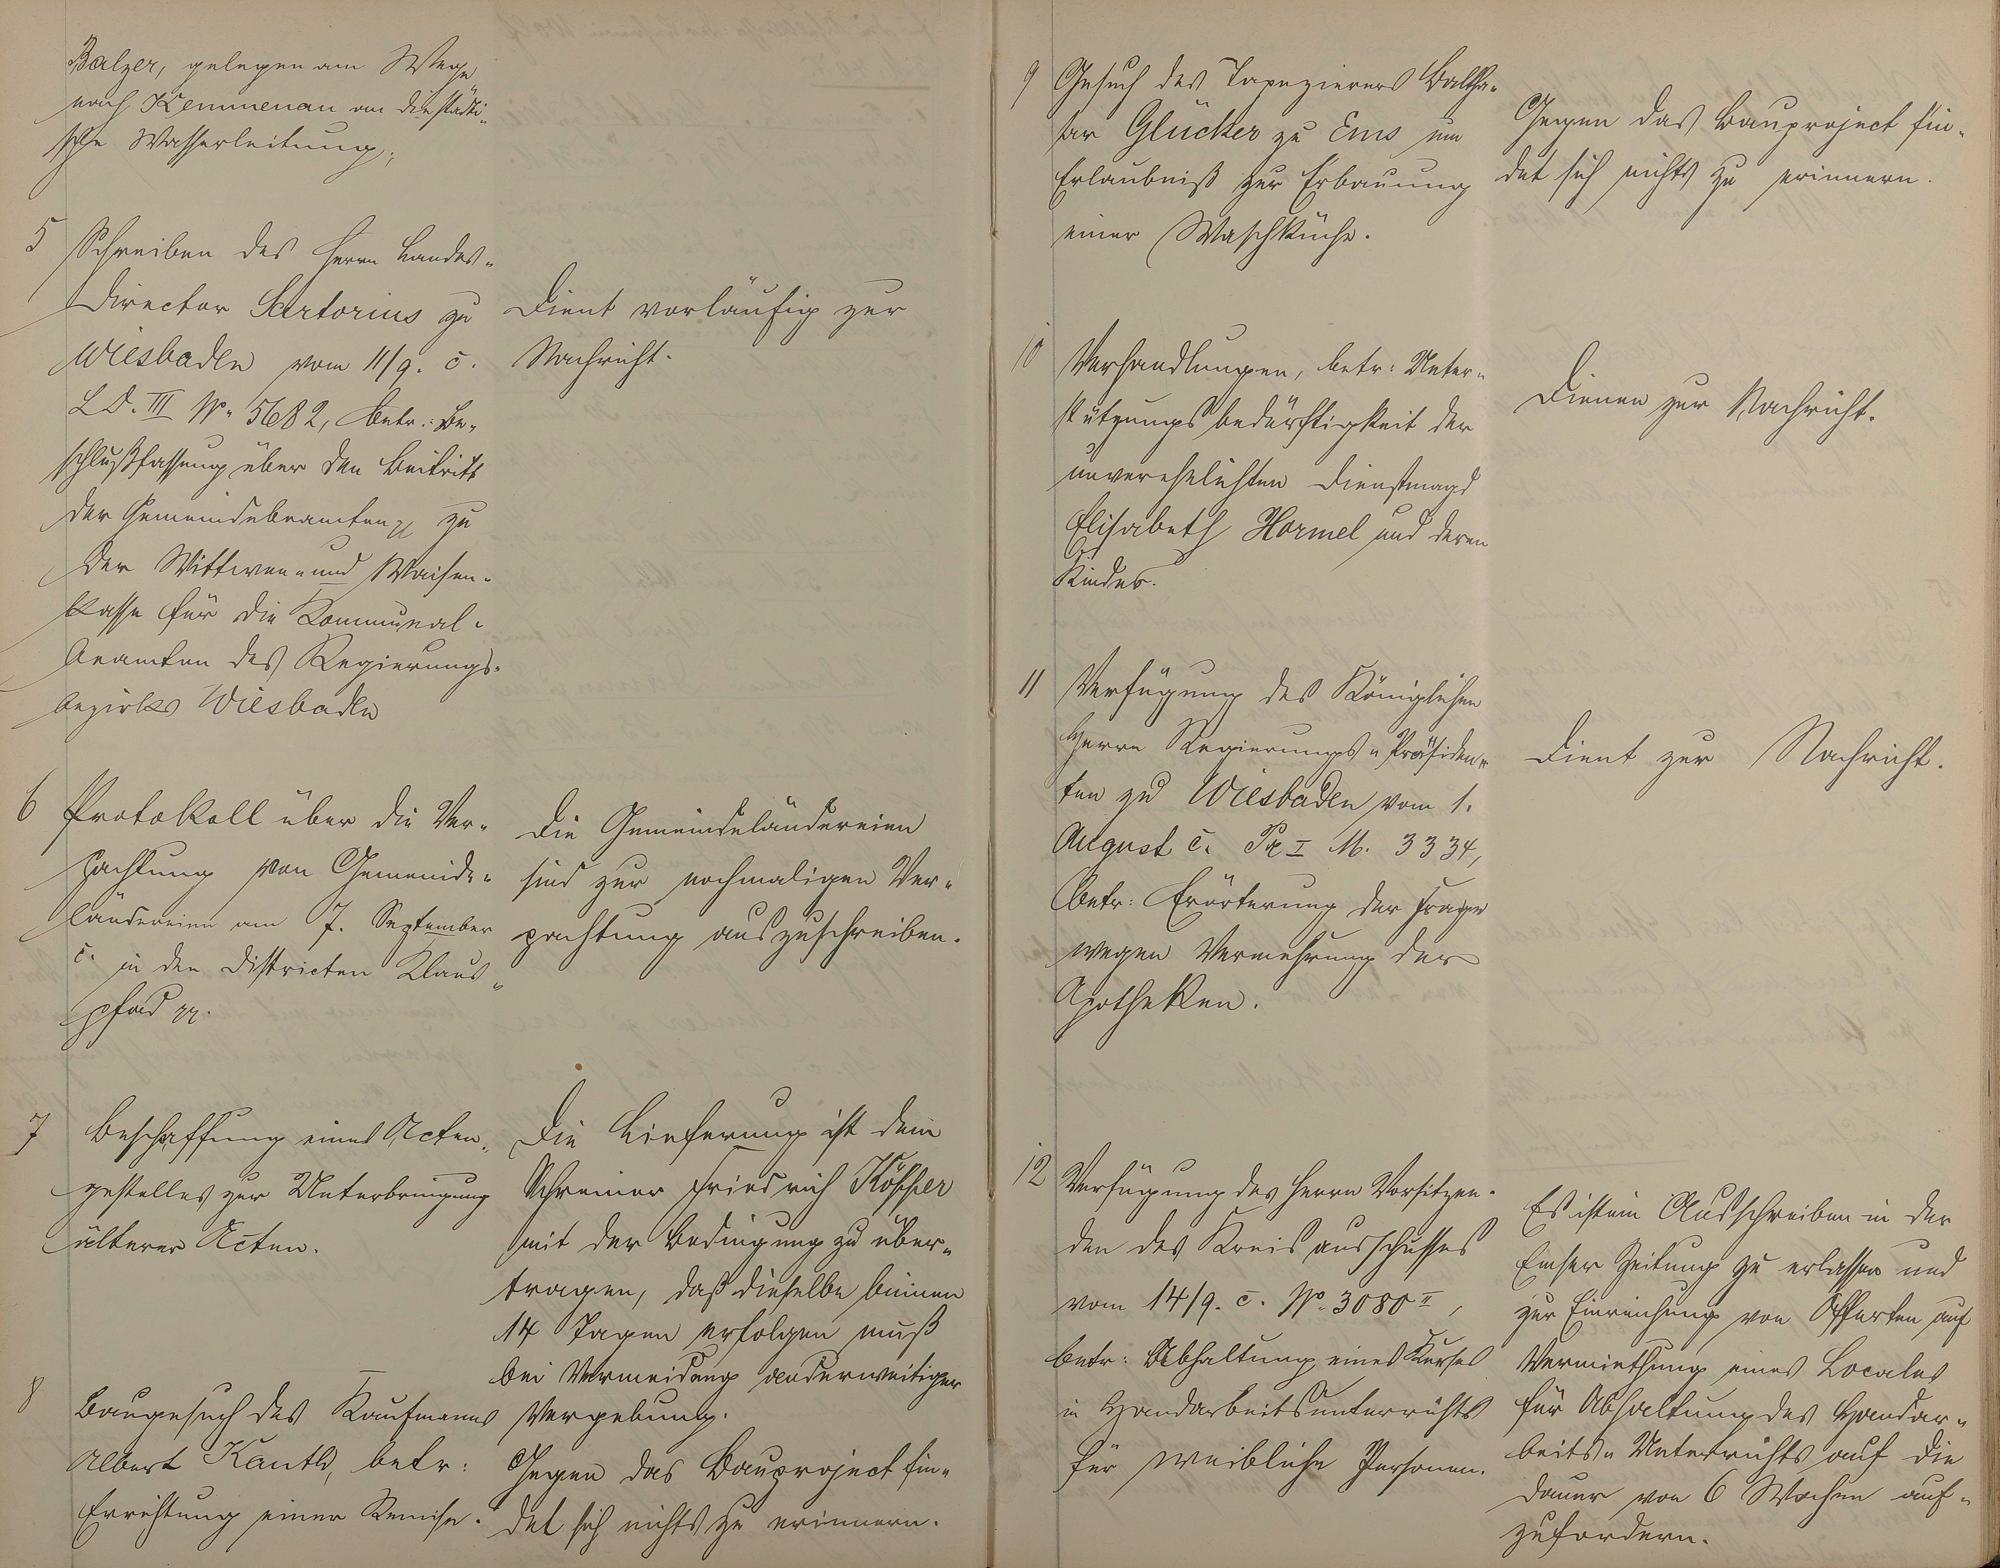 Balzer, gelegen am Wege
nach Kemmenau an die städti-
sche Wasserleitung;
5 Schreiben des Herrn Landes-
director Sartorius zu
Wiesbaden vom 11/9. c.
L.D. III No. 5682, betr.: Be-
schlußfassung über den Beitritt
der Gemeindebeamten pp zu
der Wittwen- und Waisen-
kasse für die Kommunal-
beamten des Regierungs-
bezirks Wiesbaden
Dient vorläufig zur
Nachricht.
6 Protokoll über die Ver-
pachtung von Gemeinde-
ländereien am 7. September
c. in den Districten Klaus-
pfad pp.
Die Gemeindeländereien
sind zur nochmaligen Ver-
pachtung auszuschreiben.
7 Beschaffung eines Acten-
gestelles zur Unterbringung
älterer Acten.
Die Lieferung ist dem
Schreiner Friedrich
mit der Bedingung zu über-
tragen, daß dieselbe binnen
14 Tagen erfolgen muß
bei Vermeidung anderweitiger
Vergebung.
8 Baugesuch des Kaufmanns
Albert Kauth, betr:
Errichtung einer Remise.
Gegen das Bauproject fin-
det sich nichts zu erinnern.
9 Gesuch des Tapezierers Baltha-
sar Glücker zu Ems um
Erlaubniß zur Erbauung
einer Waschküche.
Gegen das Bauproject fin-
det sich nichts zu erinnern.
10 Verhandlungen, betr: Unter-
stützungsbedürftigkeit der
unverehelichten Dienstmagd
Elisabeth Hormel und deren
Kindes.
Dienen zur Nachricht.
11 Verfügung des Königlichen
Herrn Regierungs-Präsiden-
ten zu Wiesbaden vom 1.
August c. Pr I M. 3334,
betr: Erörterung der Frage
wegen Vermehrung der
Apotheken.
Dient zur Nachricht.
12 Verfügung des Herrn Vorsitzen-
den des Kreisausschusses
vom 14/9. c. No. 3080 I,
betr: Abhaltung eines Kurses
in Handarbeitsunterrichts
für weibliche Personen.
Es ist ein Ausschreiben in der
Emser Zeitung zu erlassen und
zur Einreichung von Offerten auf
Vermiethung eines Locales
für Abhaltung des Handar-
beits-Unterrichts auf die
Dauer von 6 Wochen auf-
zufordern.